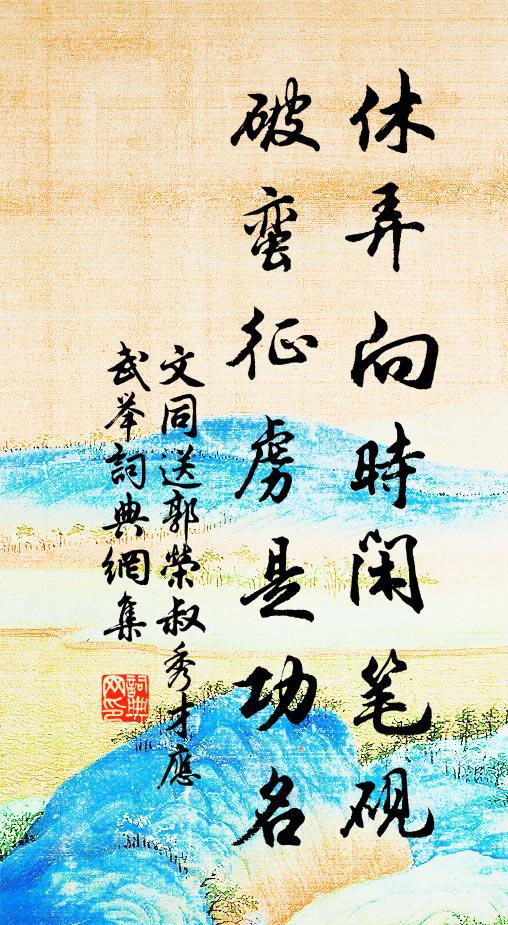 休弄向時閑笔硯
破蛮征虏是功名
文同送郭榮叔秀才應
武举詞典網集
詞典
网印